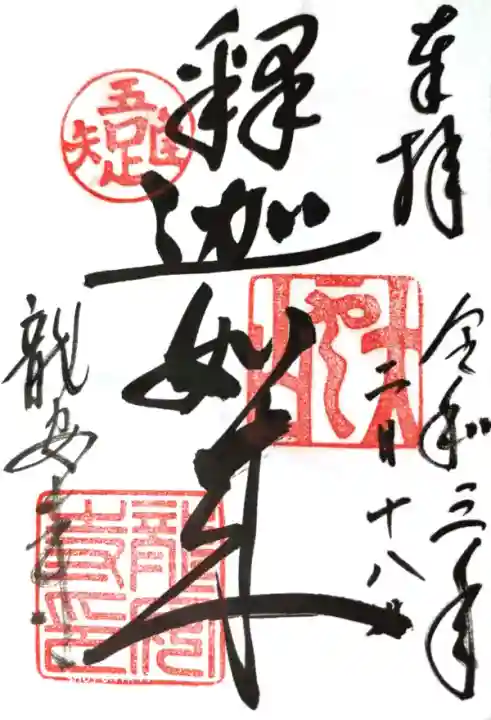 奉拝
令和三年
二月十八日
釋迦如来
龍安寺
吾唯足知